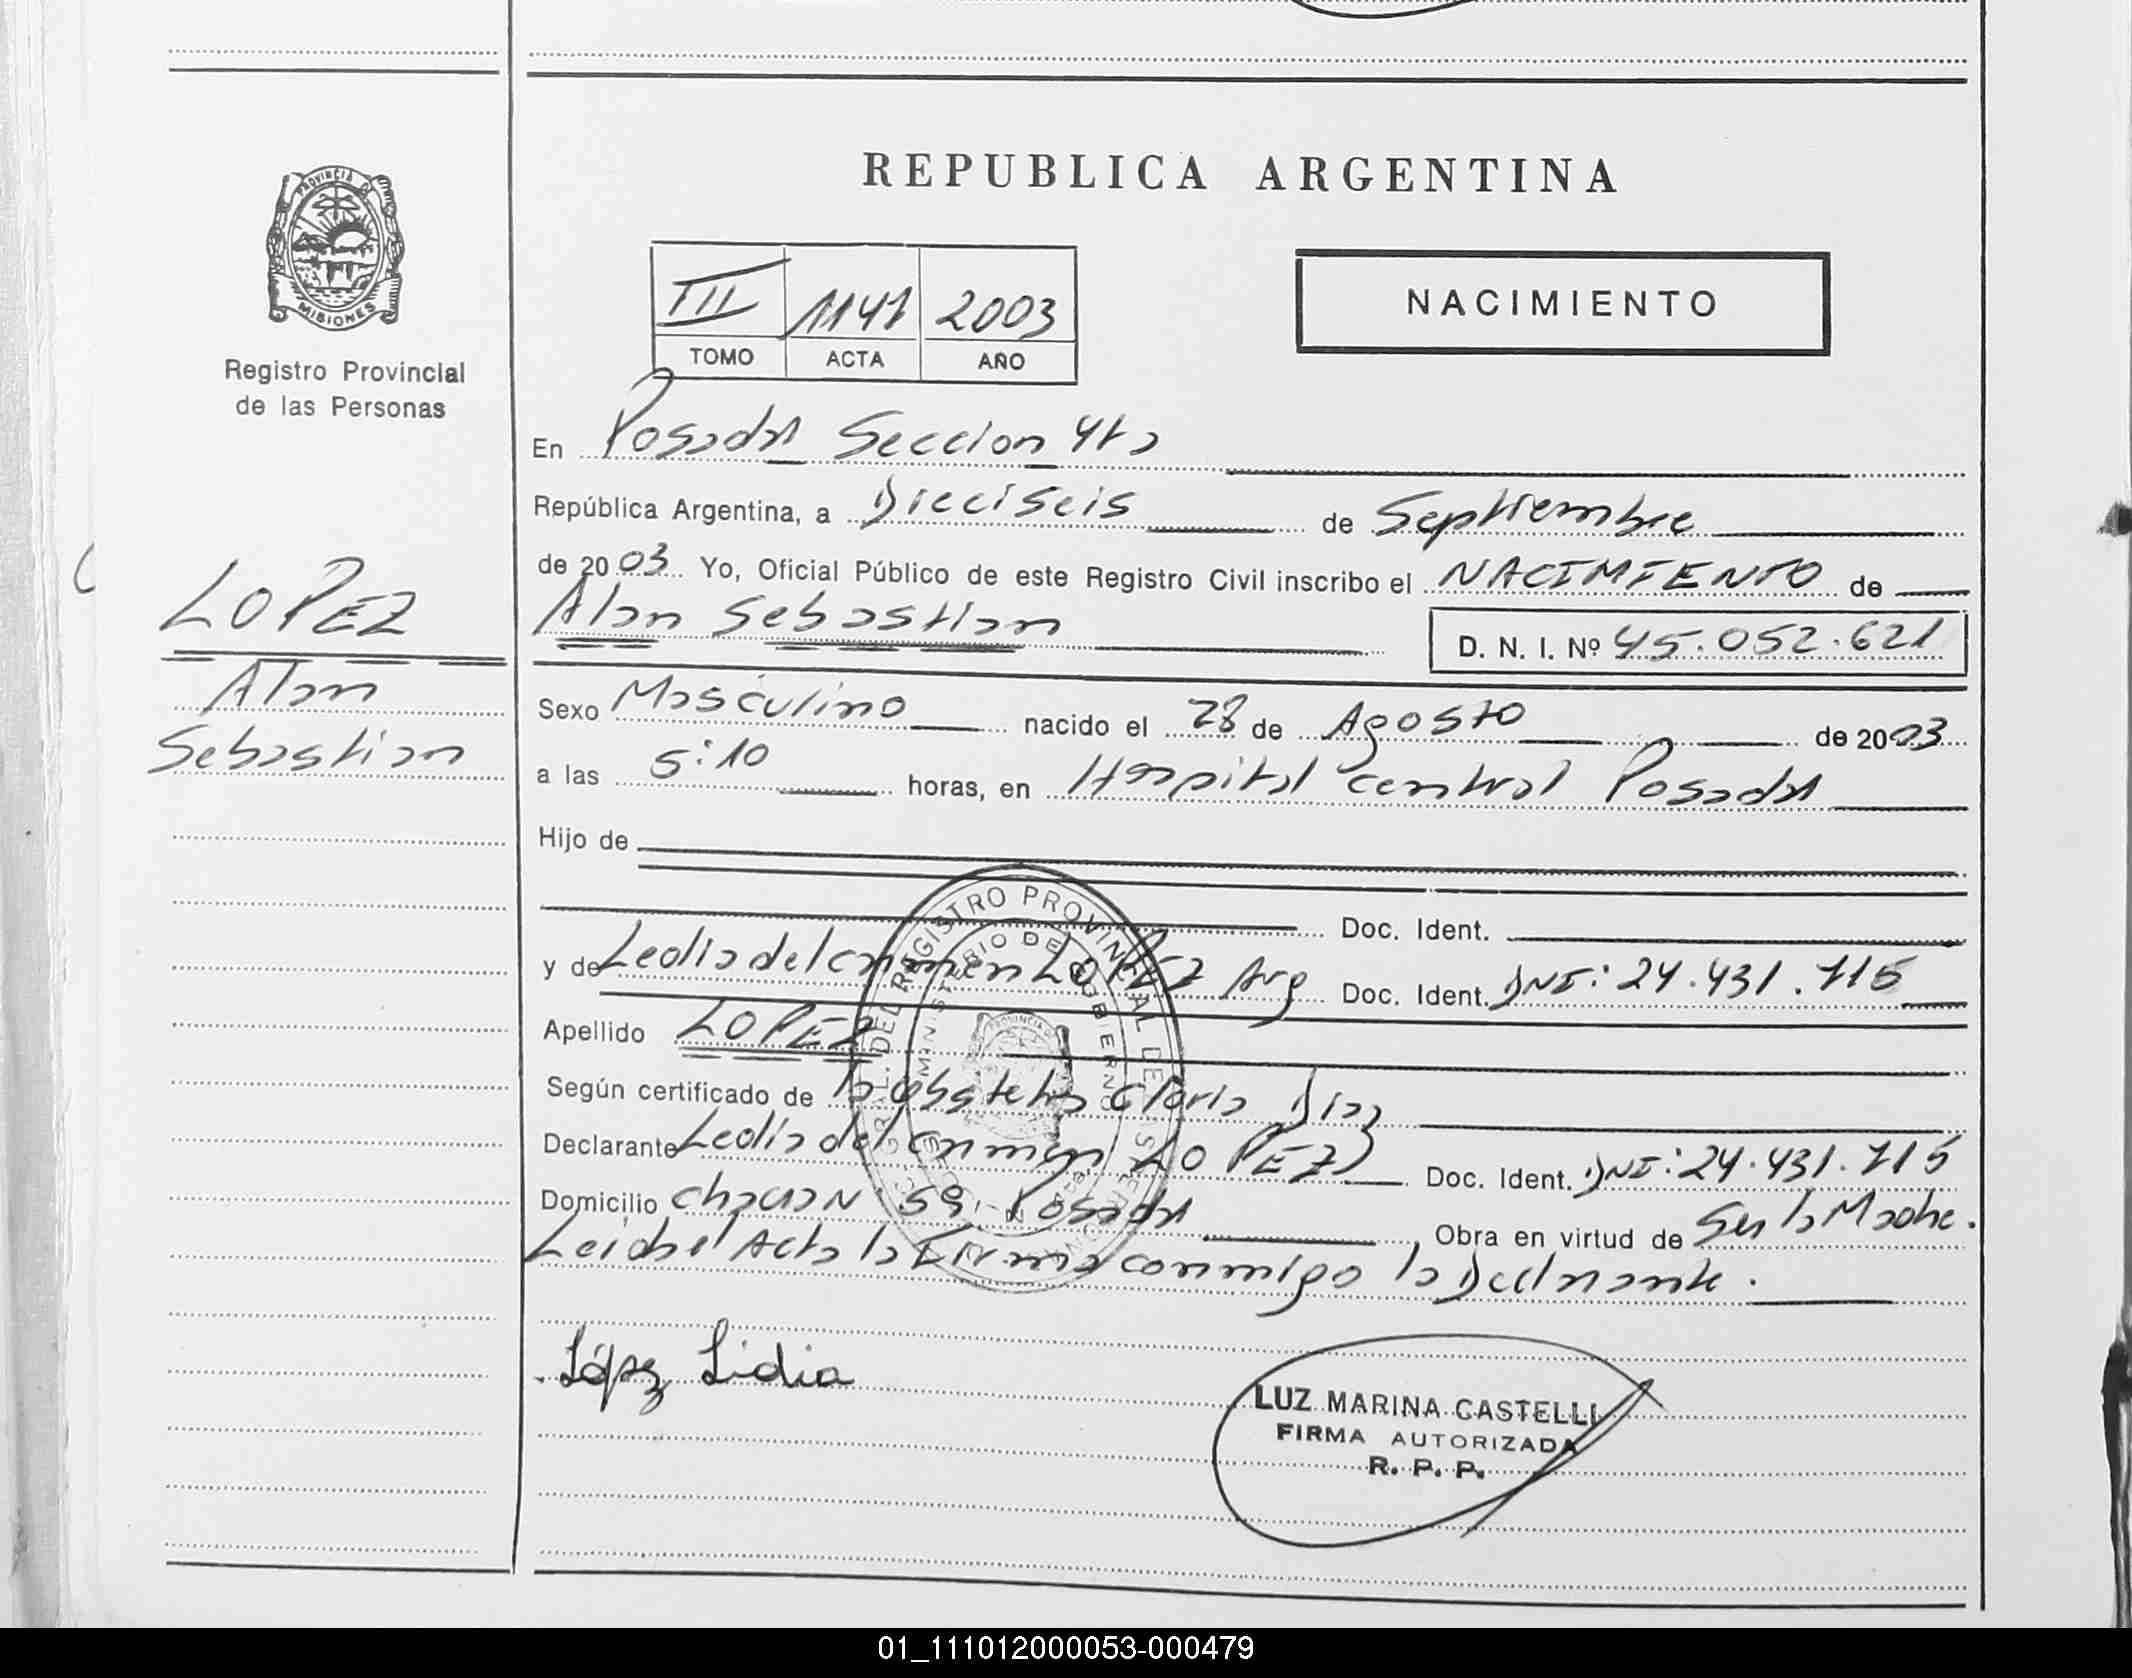 PROVINCIA DE
MISIONES
Registro Provincial
de las Personas
LOPEZ
Alan
Sebastian
REPUBLICA ARGENTINA
III 1141 2003
TOMO ACTA AÑO
NACIMIENTO
En Posadas Seccion 4ta
República Argentina, a Dieciseis de Septiembre
de 2003 Yo, Oficial Público de este Registro Civil inscribo el NACIMIENTO de
Alan Sebastian D. N. I. Nº 45.052.621
Sexo Masculino nacido el 28 de Agosto de 2003
a las 5:10 horas, en Hospital central Posadas
Hijo de
Doc. Ident.
y de Ledia del carmen LOPEZ Arg Doc. Ident. DNI: 24.431.715
Apellido LOPEZ
Según certificado de la obstetra Gloria Diaz
Declarante Ledia del carmen LOPEZ Doc. Ident. DNI: 24.431.715
Domicilio 59, Posadas Obra en virtud de Ser la Madre.
Leida el Acta la Firma conmigo la Declarante.
REGISTRO PROVINCIAL DE
MINISTERIO DE GOBIERNO
López Lidia
LUZ MARINA CASTELLI
FIRMA AUTORIZADA
R. P. P.
01_111012000053-000479